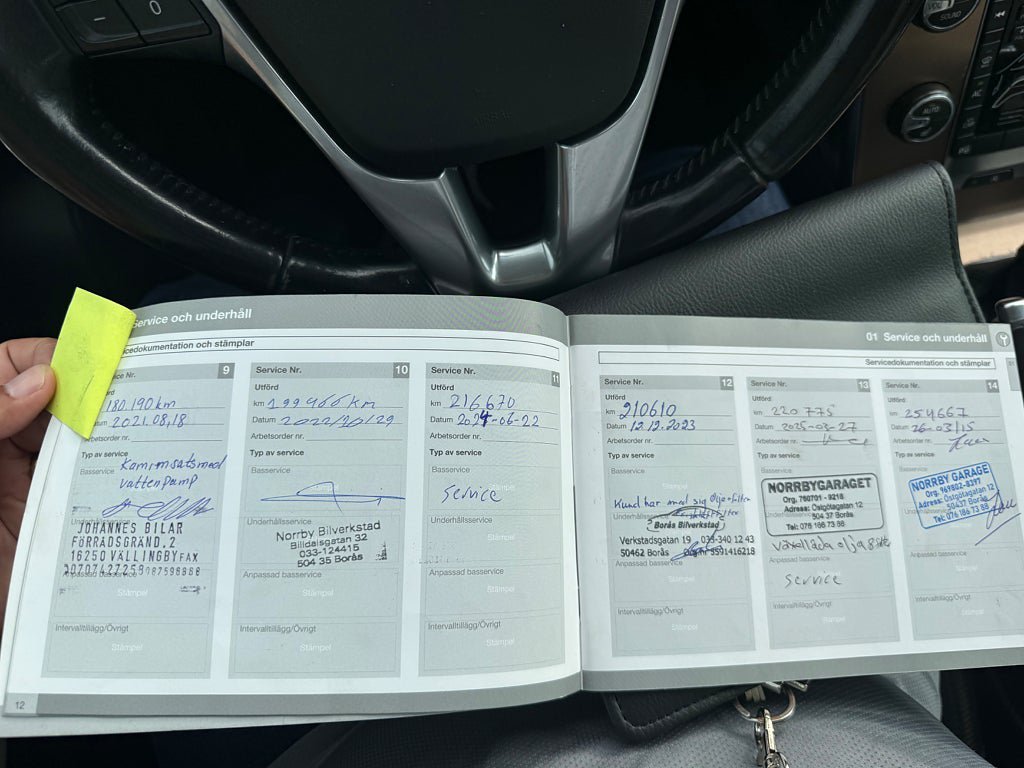 0
SOUND
AUTO
AC
Service och underhåll
Servicedokumentation och stämplar
Service Nr. 9
Utförd
180.190 km
Datum 2021.08,18
Arbetsorder nr.
Typ av service
Basservice
Kamrimsats med
vattenpump
Underhållsservice
JOHANNES BILAR
FÖRRADSGRÄND,2
16250 VÄLLINGBY FAX
Anpassad basservice
Stämpel
Intervalltillägg/Övrigt
Stämpel
12
Service Nr. 10
Utförd
km 199466 km
Datum 2022/10/29
Arbetsorder nr.
Typ av service
Basservice
Underhållsservice
Norrby Bilverkstad
Billdalsgatan 32
033-124415
504 35 Borås
Anpassad basservice
Stämpel
Intervalltillägg/Övrigt
Stämpel
Service Nr. 11
Utförd
km 216670
Datum 2024-06-22
Arbetsorder nr.
Typ av service
Basservice
Service
Underhållsservice
Stämpel
Anpassad basservice
Stämpel
Intervalltillägg/Övrigt
Stämpel
01 Service och underhåll
Servicedokumentation och stämplar
01
Service Nr. 12
Utförd
km 210610
Datum 12.12.2023
Arbetsorder nr.
Typ av service
Basservice
Kund har med sig Olje+filter
Underhållsservice
Borås Bilverkstad
Verkstadsgatan 19 033-340 12 43
50462 Borås
Anpassad basservice
Stämpel
Intervalltillägg/Övrigt
Stämpel
Service Nr. 13
Utförd
km 220 775
Datum 2025-03-27
Arbetsorder nr.
Typ av service
Basservice
NORRBYGARAGET
Org. 760701 - 9218
Adress: Östgötagatan 12
504 37 Borås
Tel: 076 186 73 88
växellåda olja
Anpassad basservice
Service
Stämpel
Intervalltillägg/Övrigt
Stämpel
Service Nr. 14
Utförd
km 254667
Datum 26-03/15
Arbetsorder nr.
Typ av service
Basservice
NORRBY GARAGE
Org: 969802-8397
Adress: Östgötagatan 12
504 37 Borås
Tel: 076 186 73 88
Underhållsservice
Anpassad basservice
Stämpel
Intervalltillägg/Övrigt
Stämpel